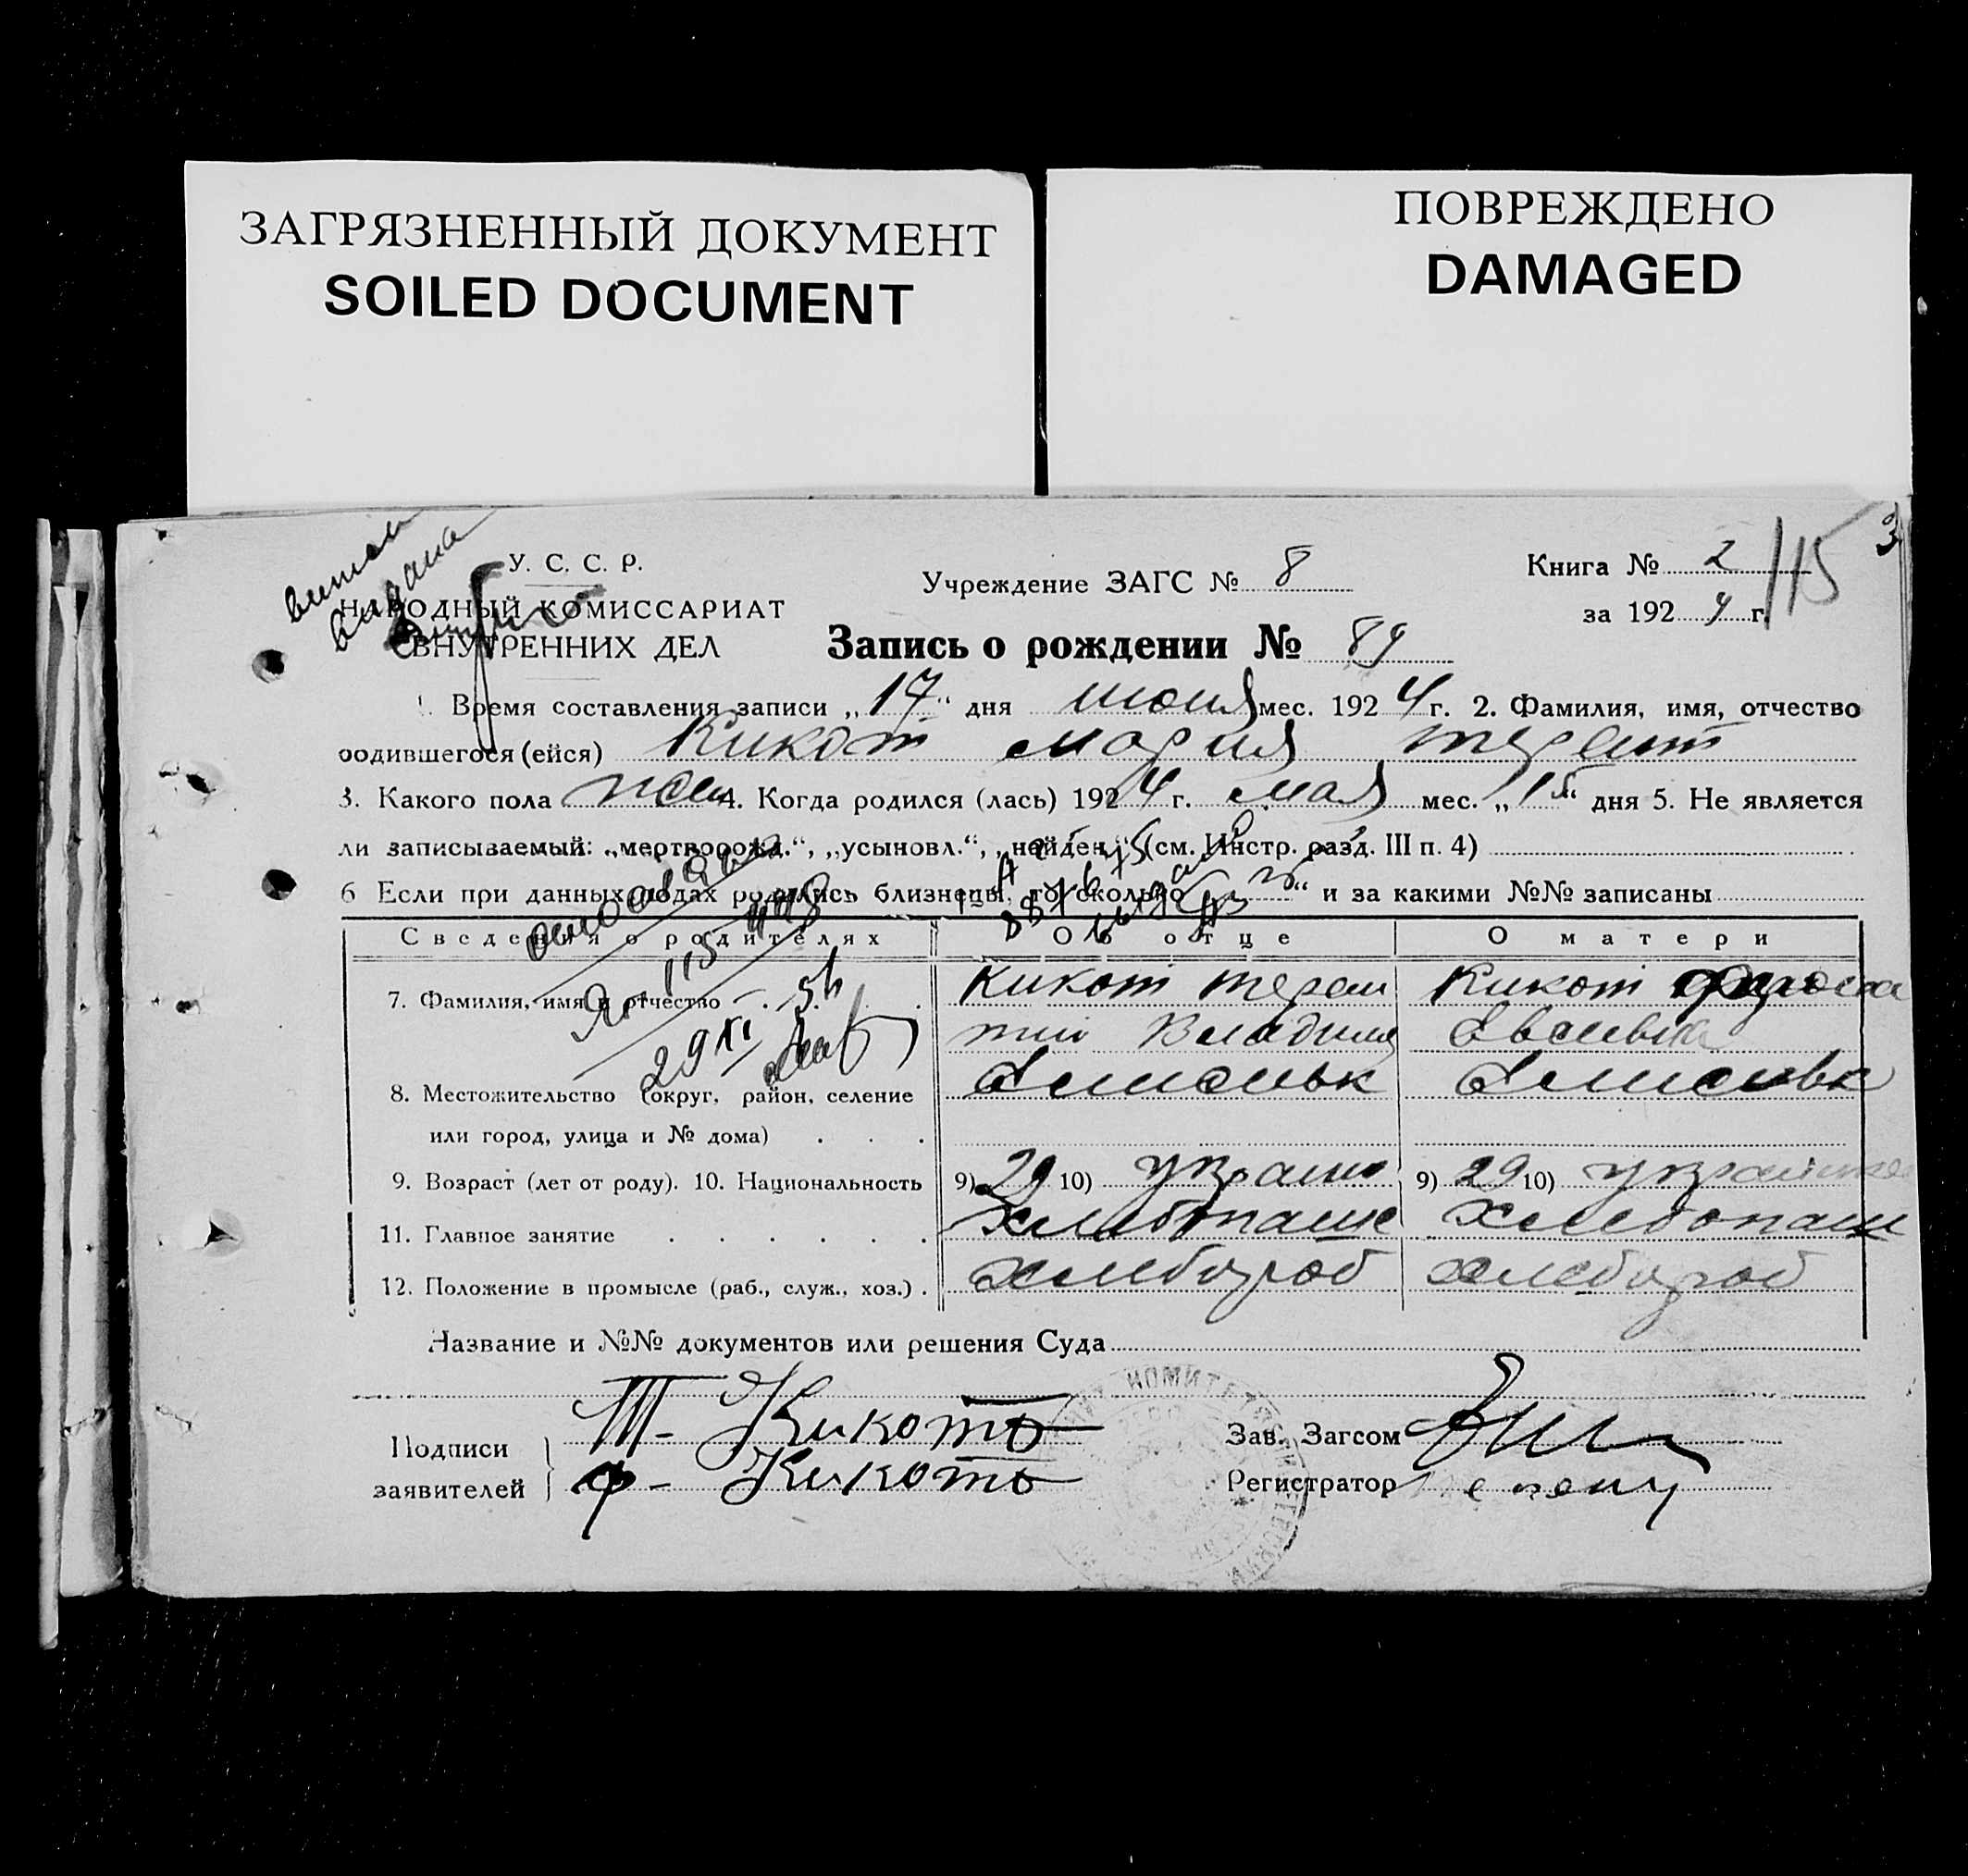 ЗАГРЯЗНЕННЫЙ ДОКУМЕНТ
SOILED DOCUMENT
ПОВРЕЖДЕНО
DAMAGED
3
У. С. С. Р.
НАРОДНЫЙ КОМИССАРИАТ
ВНУТРЕННИХ ДЕЛ
Учреждение ЗАГС № 8
Книга № 2
115
за 1924 г.
Запись о рождении № 89
1. Время составления записи „17“ дня июня мес. 1924 г. 2. Фамилия, имя, отчество
родившегося (ейся) Кикот Мария Терент
3. Какого пола жен 4. Когда родился (лась) 1924 г. мая мес. „15“ дня 5. Не является
ли записываемый: „мертворожд.“, „усыновл.“, „найден.“ (см. Инстр. разд. III п. 4)
6 Если при данных родах родились близнецы, то сколько „ “ и за какими №№ записаны
Сведения о родителях Об отце О матери
7. Фамилия, имя и отчество Кикот Терен Кикот
тий Владим
29 XI
8. Местожительство (округ, район, селение
или город, улица и № дома)
9. Возраст (лет от роду). 10. Национальность 9) 29 10) украин 9) 29 10) украинка
11. Главное занятие хлебопаше хлебопаш
12. Положение в промысле (раб., служ., хоз.) хлебороб хлебороб
Название и №№ документов или решения Суда
Подписи
заявителей
Т- Кикоть
Ф- Кикоть
Зав. Загсом
Регистратор